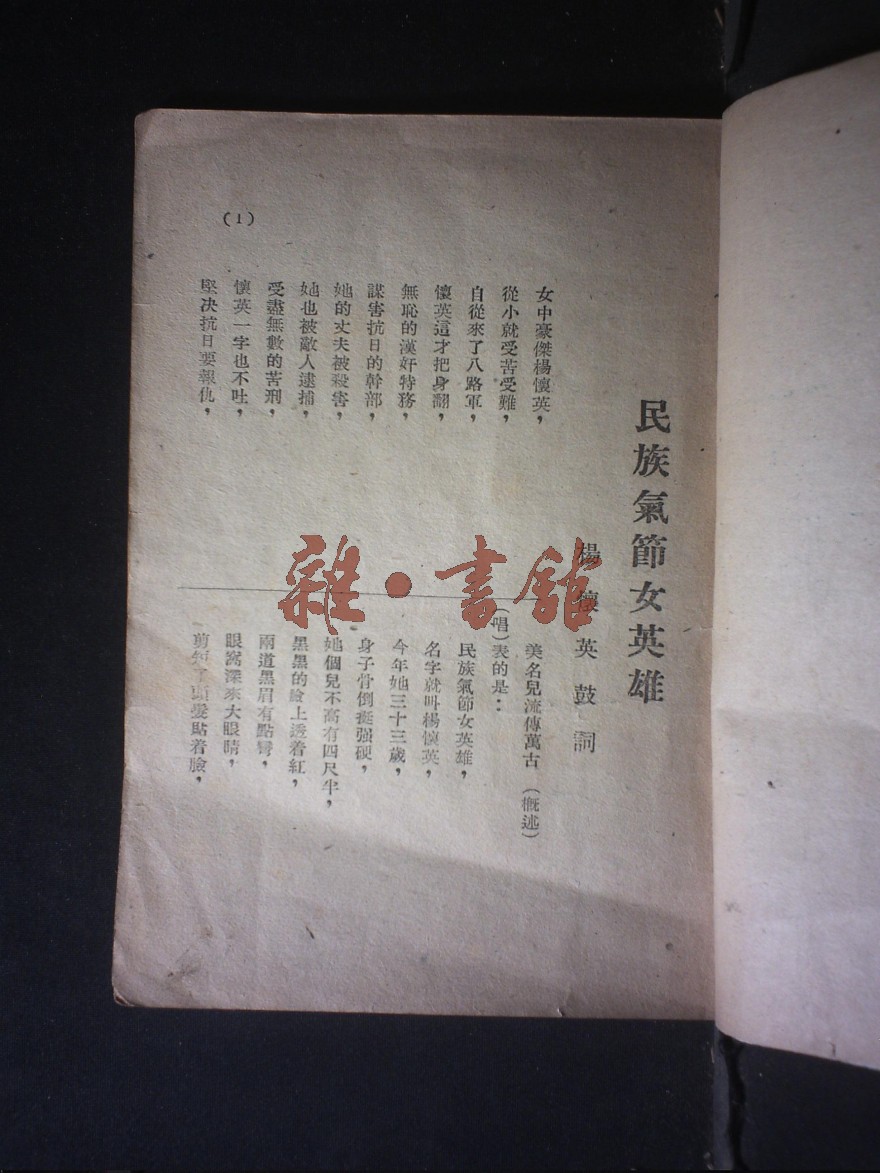 民族氣節女英雄
楊懷英鼓詞
女中豪傑楊懷英，
從小就受苦受難，
自從來了八路軍，
懷英這才把身翻，
無恥的漢奸特務，
謀害抗日的幹部，
她的丈夫被殺害，
她也被敵人逮捕，
受盡無數的苦刑，
懷英一字也不吐，
堅决抗日要報仇，
美名兒流傳萬古 （概述）
（唱）表的是：
民族氣節女英雄，
名字就叫楊懷英，
今年她三十三歲，
身子骨倒挺强硬，
她個兒不高有四尺半，
黑黑的臉上透着紅，
兩道黑眉有點彎，
眼窩深來大眼睛，
剪短了頭髮貼着臉，
(1)
雜·書館